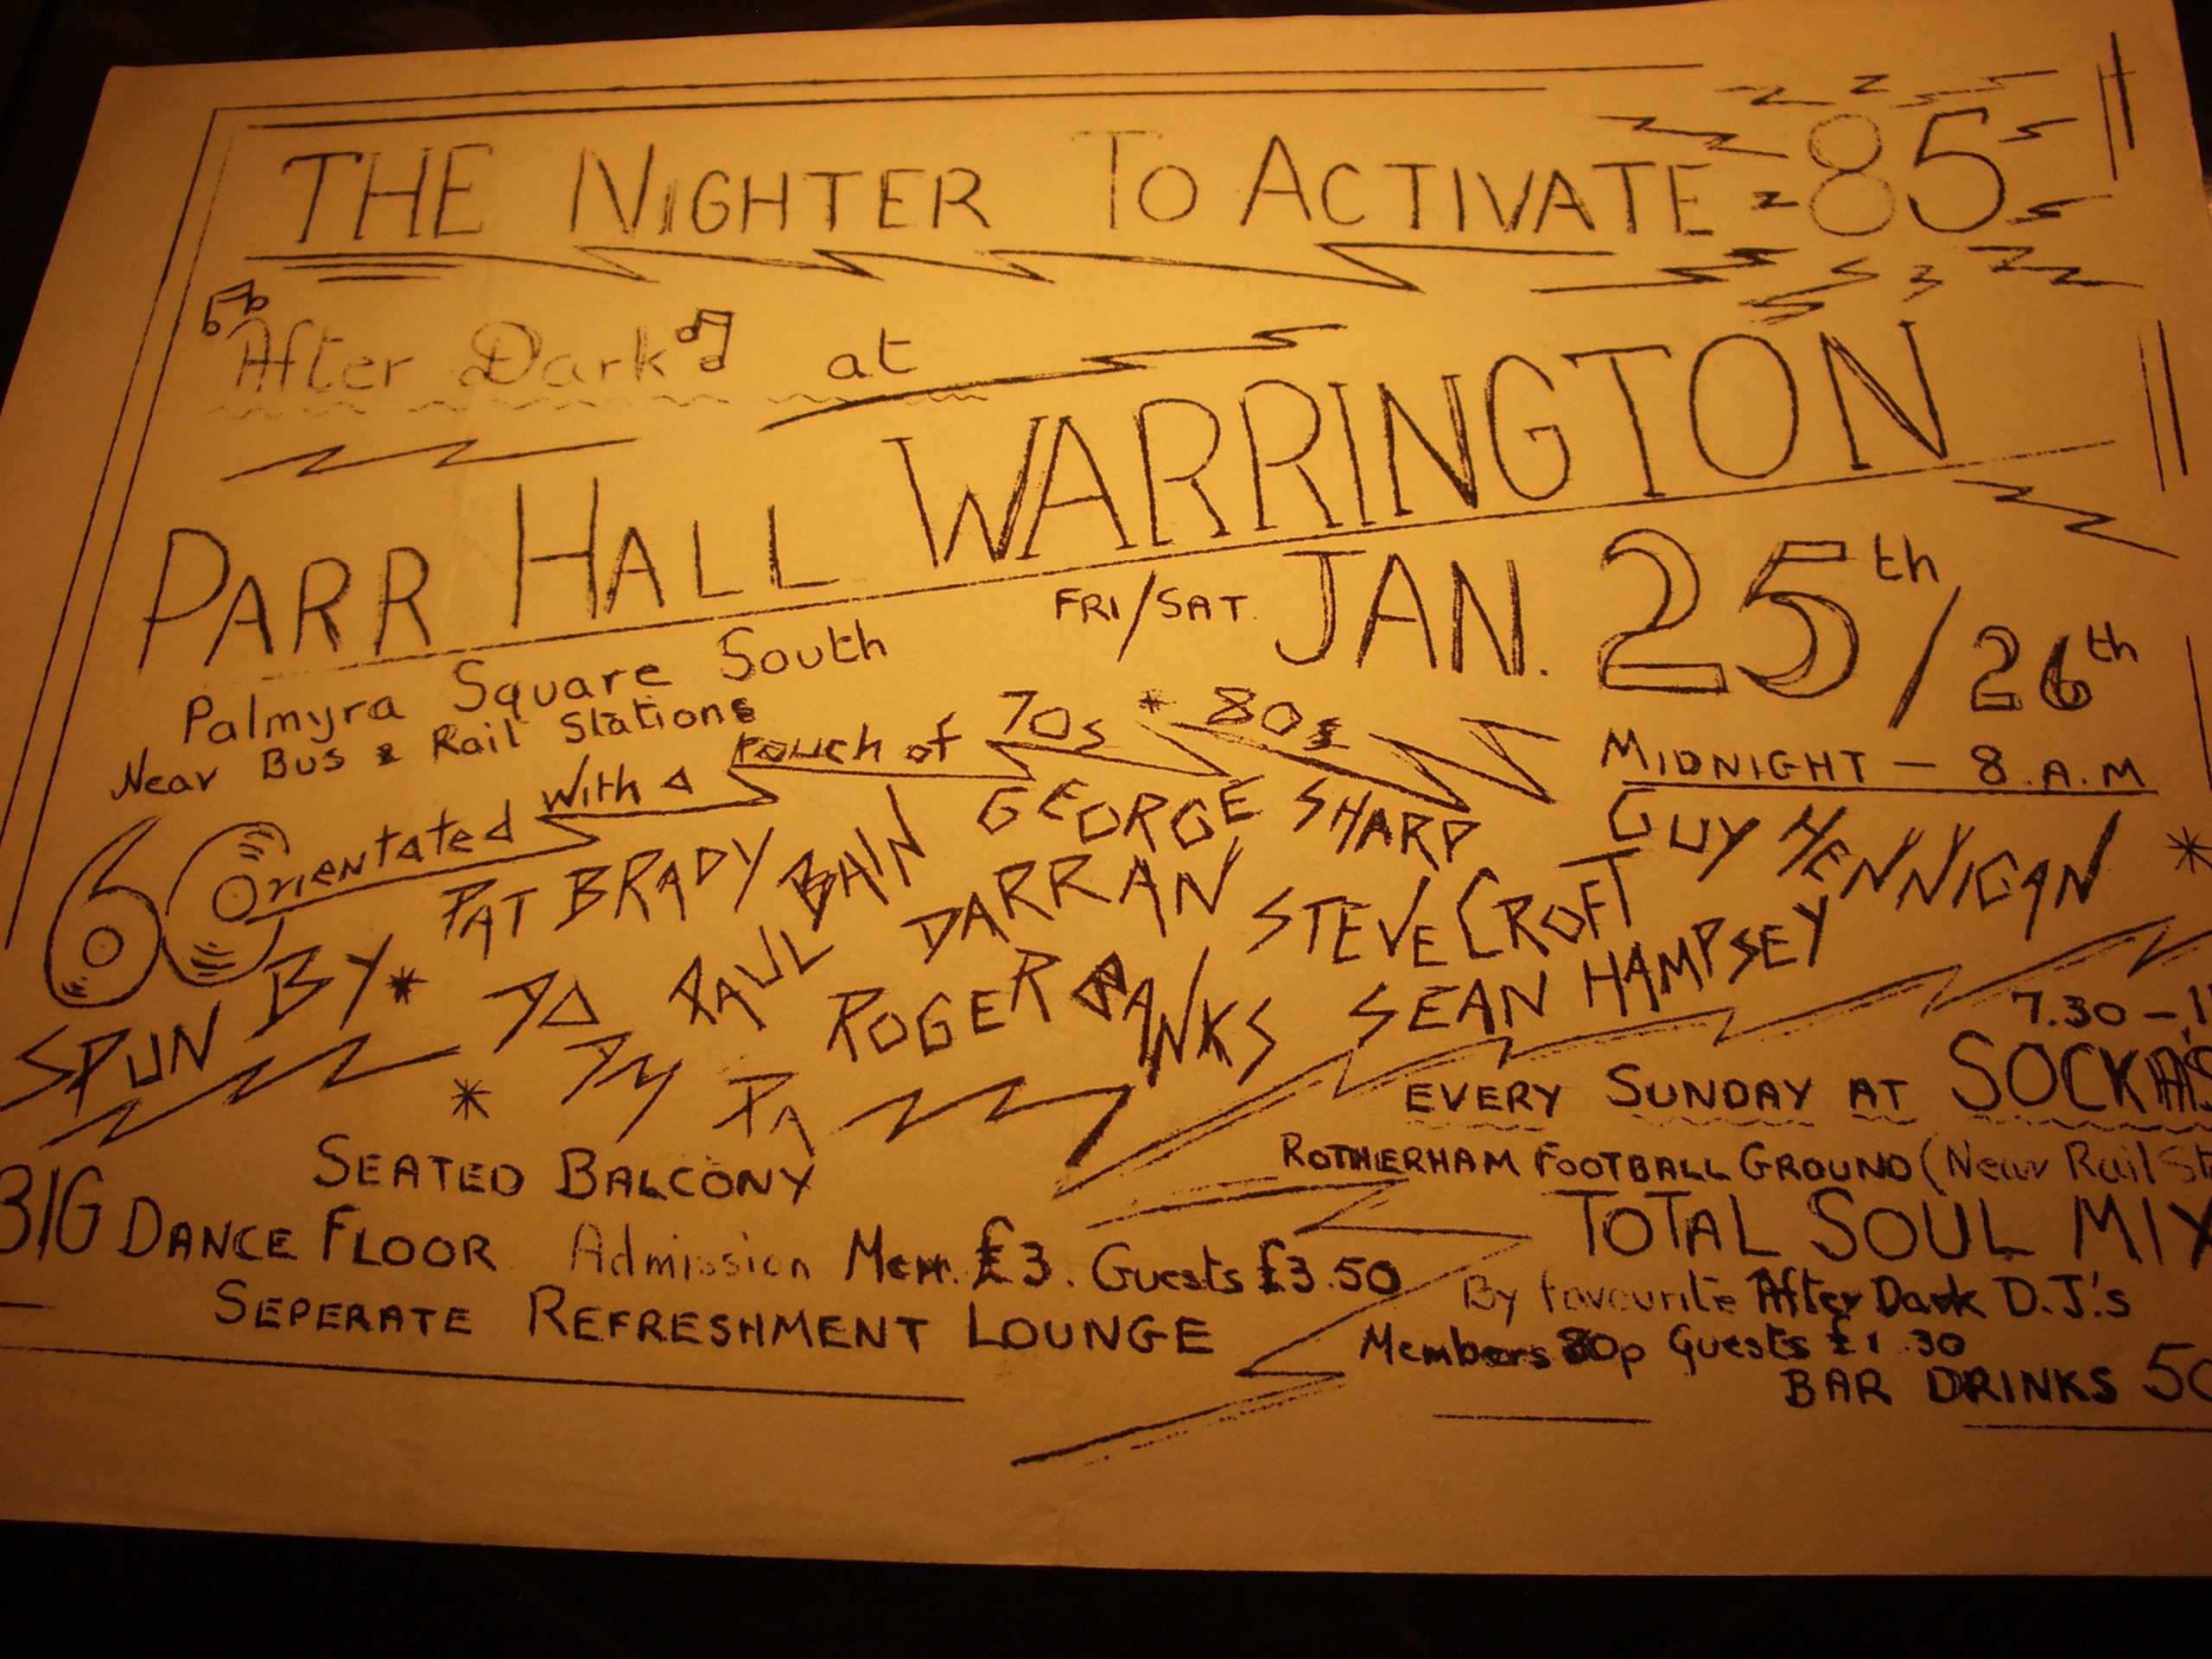 THE NIGHTER TO ACTIVATE 85
After Dark at
PARR HALL WARRINGTON
FRI/SAT. JAN. 25th/26th
Palmyra Square South
Near Bus & Rail Stations
MIDNIGHT - 8.A.M
60 Orientated with a touch of 70s * 80s
SPUN BY * PAT BRADY PAUL BAIN GEORGE SHARP GUY HENNIGAN *
DARRAN STEVE CROFT
ROGER BANKS SEAN HAMPSEY
*
SEATED BALCONY
BIG DANCE FLOOR Admission Mem. £3. Guests £3.50
SEPERATE REFRESHMENT LOUNGE
7.30 -
EVERY SUNDAY AT
ROTHERHAM FOOTBALL GROUND (Near Rail
TOTAL SOUL MIX
By favourite After Dark D.J.'s
Members 80p Guests £1.30
BAR DRINKS